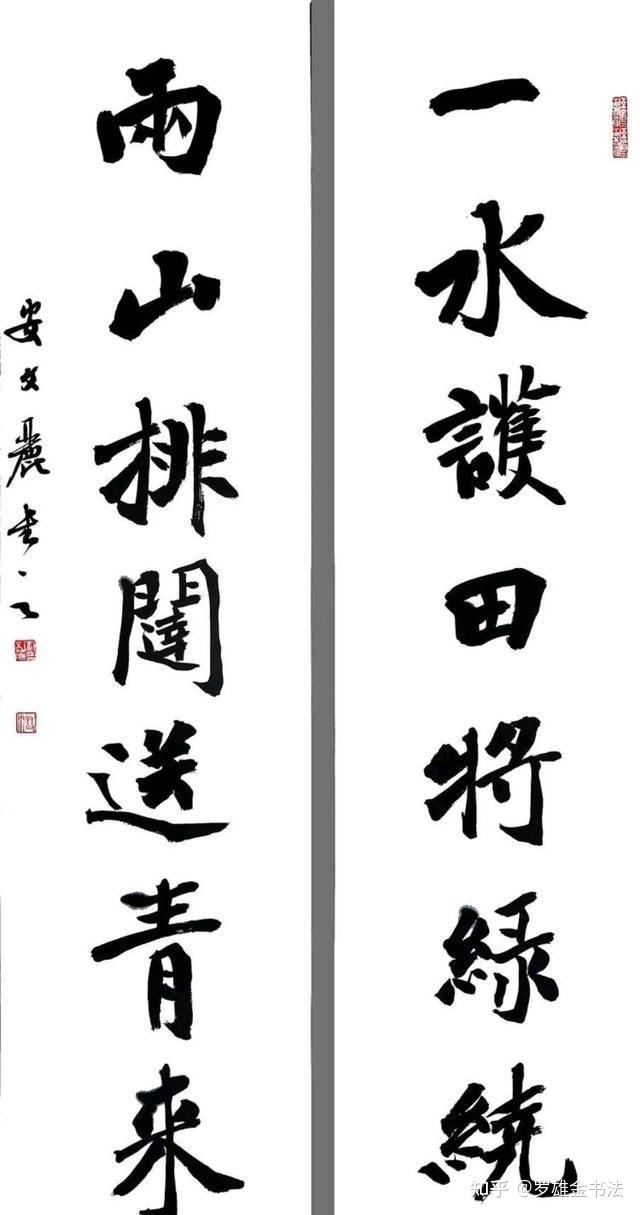 一水護田將綠繞
兩山排闥送青來
安文麗書之
知乎 @罗雄金书法